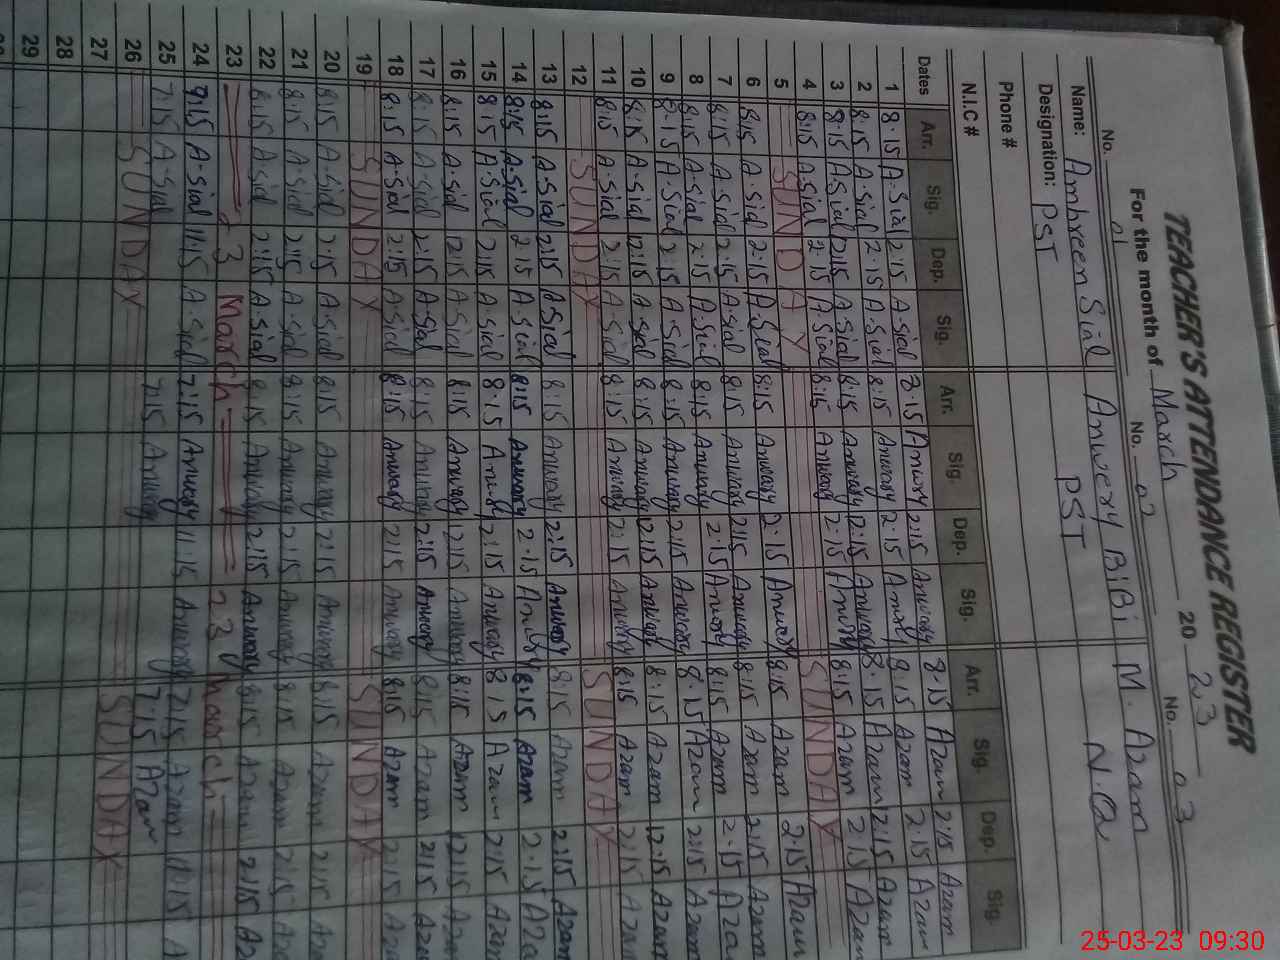 TEACHER'S ATTENDANCE REGISTER
For the month of March 20 23
No. 01 No. 02 No. 03
Name: Ambreen Sial Anwery BiBi M. Azam
Designation: PST PST N.Q
Phone #
N.I.C #
Dates Arr. Sig. Dep. Sig. Arr. Sig. Dep. Sig. Arr. Sig. Dep. Sig.
1 8:15 A.Sial 2:15 A.Sial 8:15 Anwery 2:15 Anwery 8:15 Azam 2:15 Azam
2 8:15 A.Sial 2:15 A.Sial 8:15 Anwery 2:15 Anwery 8:15 Azam 2:15 Azam
3 8:15 A.Sial 2:15 A.Sial 8:15 Anwery 2:15 Anwery 8:15 Azam 2:15 Azam
4 8:15 A.Sial 2:15 A.Sial 8:15 Anwery 2:15 Anwery 8:15 Azam 2:15 Azam
5 SUNDAY SUNDAY
6 8:15 A.Sial 2:15 A.Sial 8:15 Anwery 2:15 Anwery 8:15 Azam 2:15 Azam
7 8:15 A.Sial 2:15 A.Sial 8:15 Anwery 2:15 Anwery 8:15 Azam 2:15 Azam
8 8:15 A.Sial 2:15 A.Sial 8:15 Anwery 2:15 Anwery 8:15 Azam 2:15 Aza
9 8:15 A.Sial 2:15 A.Sial 8:15 Anwery 2:15 Anwery 8:15 Azam 2:15 Azam
10 8:15 A.Sial 12:15 A.Sial 8:15 Anwery 12:15 Anwery 8:15 Azam 12:15 Azam
11 8:15 A.Sial 2:15 A.Sial 8:15 Anwery 2:15 Anwery 8:15 Azam 2:15 Azam
12 SUNDAY SUNDAY
13 8:15 A.Sial 2:15 A.Sial 8:15 Anwery 2:15 Anwery 8:15 Azam 2:15 Azam
14 8:15 A.Sial 2:15 A.Sial 8:15 Anwery 2:15 Anwery 8:15 Azam 2:15 Aza
15 8:15 A.Sial 2:15 A.Sial 8:15 Anwery 2:15 Anwery 8:15 Azam 2:15 Azam
16 8:15 A.Sial 12:15 A.Sial 8:15 Anwery 12:15 Anwery 8:15 Azam 12:15 Aza
17 8:15 A.Sial 2:15 A.Sial 8:15 Anwery 2:15 Anwery 8:15 Azam 2:15 Aza
18 8:15 A.Sial 2:15 A.Sial 8:15 Anwery 2:15 Anwery 8:15 Azam 2:15 Aza
19 SUNDAY SUNDAY
20 8:15 A.Sial 2:15 A.Sial 8:15 Anwery 2:15 Anwery 8:15 Azam 2:15 Aza
21 8:15 A.Sial 2:15 A.Sial 8:15 Anwery 2:15 Anwery 8:15 Azam 2:15 Aza
22 8:15 A.Sial 2:15 A.Sial 8:15 Anwery 2:15 Anwery 8:15 Azam 2:15 Az
23 23 March 23 March
24 7:15 A.Sial 11:15 A.Sial 7:15 Anwery 11:15 Anwery 7:15 Azam 11:15 A
25 7:15 A.Sial 7:15 Anwery 7:15 Azam
26 SUNDAY SUNDAY
27
28
29
25-03-23 09:30